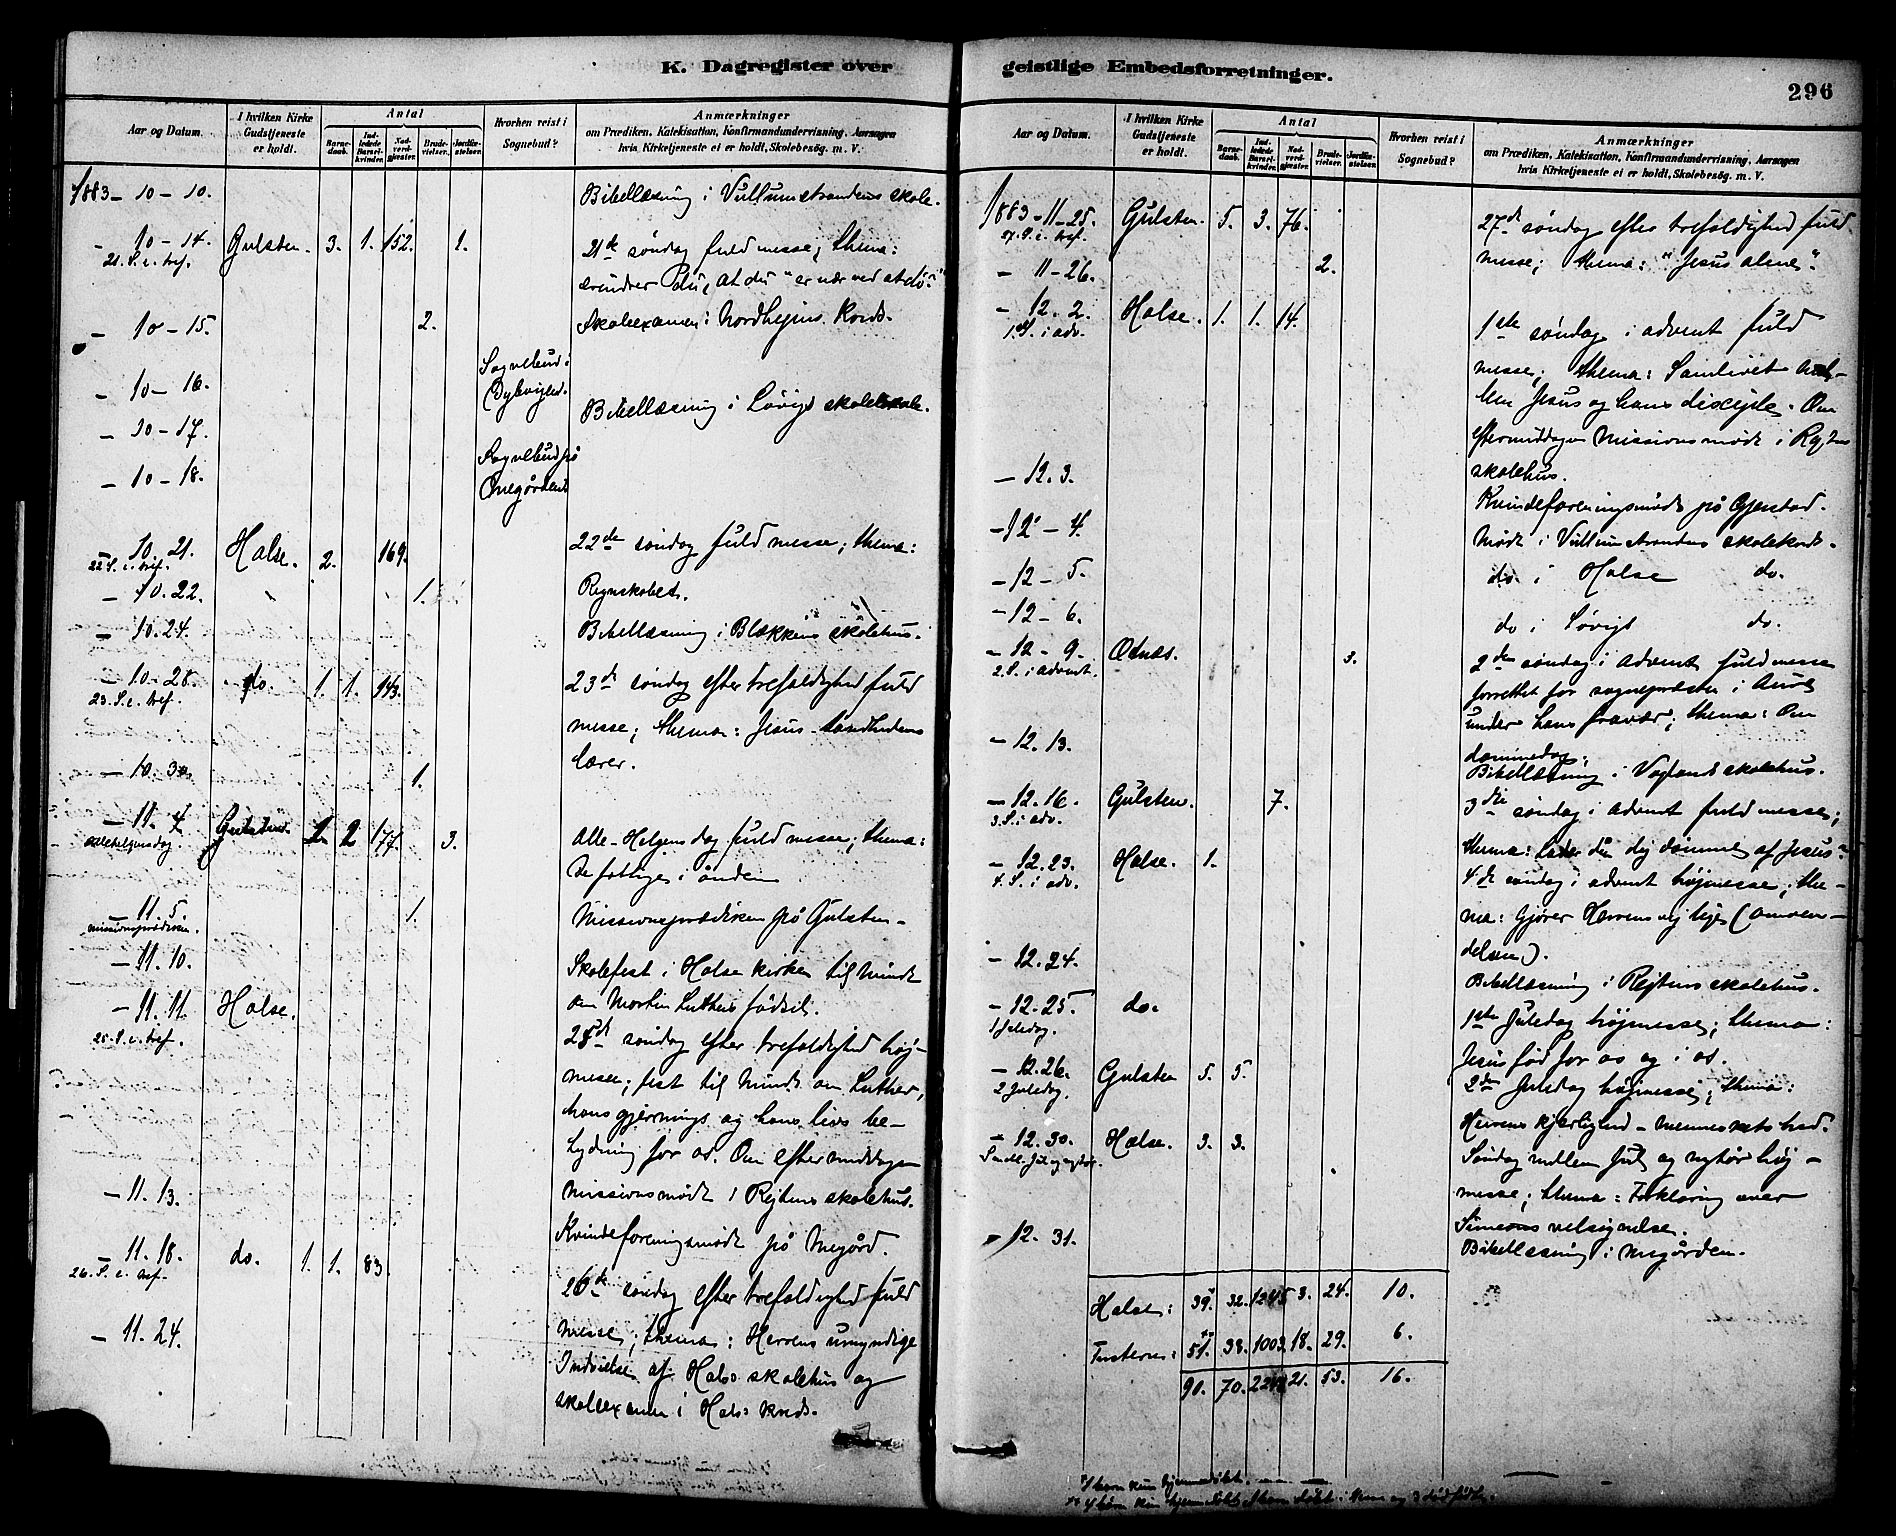 K. Dagregister over
Aar og Datum.
I hvilken Kirke Gudstjeneste er holdt.
Antal
Barnedaab.
Indledede Barselkvinder.
Nadverdgjester.
Brudevielser.
Jordfæstelser.
Hvorhen reist i Sognebud?
Anmærkninger
om Prædiken, Katekisation, Konfirmandundervisning, Aarsagen
hvis Kirketjeneste ei er holdt, Skolebesög. m. V.
1883 - 10 - 10. Bibellæsning i Vullumstrandens skole.
- 10 - 14. Gulsten. 3. 1. 152. 1. 21de søndag fuld messe; thema:
21. S. e. tref. erindrer du, at du "er nær ved at dø"
- 10 - 15. 2. Skolexamen i Nordhejms kreds.
- 10 - 16. Sognebud i
- 10 - 17. Bibellæsning i Løvigs
- 10 - 18. Sognebud på
- 10. 21. Halse. 2. 169. 22de søndag fuld messe; thema:
22 S. e. tref. Regnskabet.
- 10. 22. 1.
- 10. 24. Bibellæsning i Blekkens skolehus.
- 10 - 28. do. 1. 1. 143. 23de søndag efter trefoldighed fuld
23. S. e. tref. messe; thema: Jesus sandhedens
lærer.
- 10. 30. 1.
- 11. 4. Gulsten. 2 177. 3. Alle-Helgensdag fuld messe; thema:
allehelgensdag De fattige i ånden
- 11. 5. 1. Missionsprædiken på Gulsten -
missionsprædiken.
- 11. 10. Skolefest i Halse kirke til minde
om Morten Luthers fødsel.
- 11. 11. Halse. søndag efter trefoldighed høj-
25. S. e. tref. messe; fest til minde om Luther,
hans gjernings og hans livs be-
tydning for os. Om eftermiddagen
missionsmøde i Rejtens skolehus.
- 11. 13. Kvindeforeningsmøde på Megård.
- 11. 18. do. 1. 1. 83. 26de søndag efter trefoldighed fuld
26. S. e. tref. messe; thema: Herrens umyndige
- 11. 24. Indvielse af Halse skolehus og
skolexamen i Halse kreds.
geistlige Embedsforretninger.
296
Aar og Datum.
I hvilken Kirke Gudstjeneste er holdt.
Antal
Barnedaab.
Indledede Barselkvinder.
Nadverdgjester.
Brudevielser.
Jordfæstelser.
Hvorhen reist i Sognebud?
Anmærkninger
om Prædiken, Katekisation, Konfirmandundervisning, Aarsagen
hvis Kirketjeneste ei er holdt, Skolebesög. m. V.
1883 - 11 - 25. Gulsten. 5. 3. 76. 27de søndag efter trefoldighed fuld
27. S. e. tref. messe; thema: "Jesus alene".
- 11 - 26. 2.
- 12. 2. Halse. 1. 1. 14. 1ste søndag i advent fuld
1. S. i adv. messe; thema: Samlivet mel-
lem Jesus og hans disciple. Om
eftermiddagen missionsmøde i Rejtens
skolehus.
- 12. 3. Kvindeforeningsmøde på Gjerstad.
- 12 - 4. Møde i Vullumstrandens skolekreds.
- 12 - 5. do. i Halse do.
- 12 - 6. do i Løvigs do.
- 12 - 9. Ædnæs. 3. 2den søndag i advent fuld messe
2. S. i advent. forrettet for sognepræsten i Aure
under hans fravær; thema: Om
dommedag.
- 12. 13. Bibellæsning i Vaglands skolehus.
- 12. 16. Gulsten. 7. 3die søndag i advent fuld messe;
3. S. i adv. thema: Lader du dig dømme af Jesus?
- 12. 23. Halse. 1. 4de søndag i advent højmesse; the-
4. S. i adv. ma: Gjører Herrens vej lige (omven-
delsen).
- 12. 24. Bibellæsning i Rejtens skolehus.
- 12. 25. do. 1ste Juledag højmesse; thema:
1 Juledag. Jesus fød for os og i os.
- 12. 26. Gulsten 5. 5. 2den Juledag højmesse; thema:
2 Juledag. Herrens kjærlighed - menneskets had.
- 12. 30. Halse. 3. 3. Søndag mellem Jul og nytår høj-
S. mell. Jul og nytår. messe; thema: Forklaring over
Simeons velsignelse.
- 12. 31. Bibellæsning i Megården.
Halse: 39. 32. 1245 3. 24. 10.
Tusteren: 51. 38. 1003. 18. 29. 6.
90. 70. 2248 21. 53. 16.
* 1 barn kun hjemmedøbt.